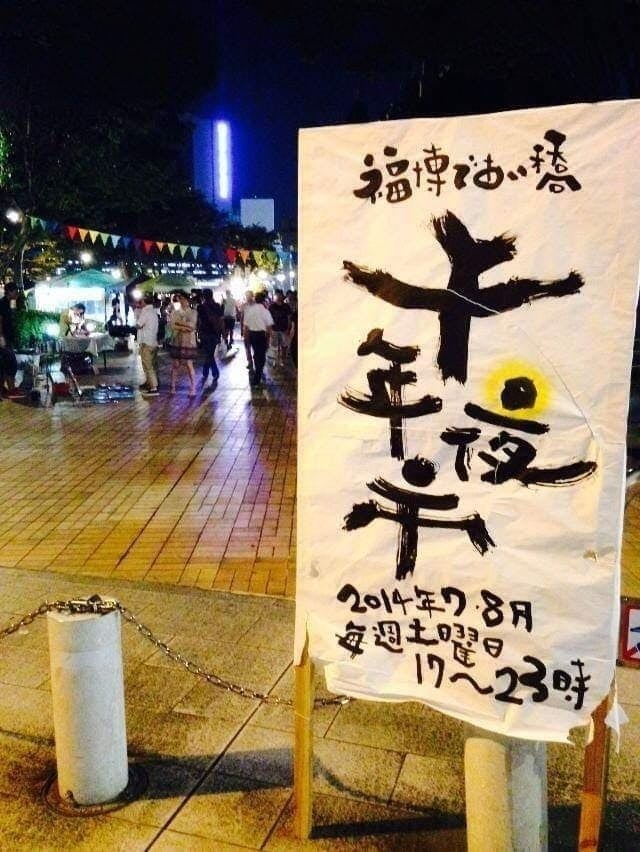 福博であい橋
千年夜市
2014年7・8月
毎週土曜日
17～23時